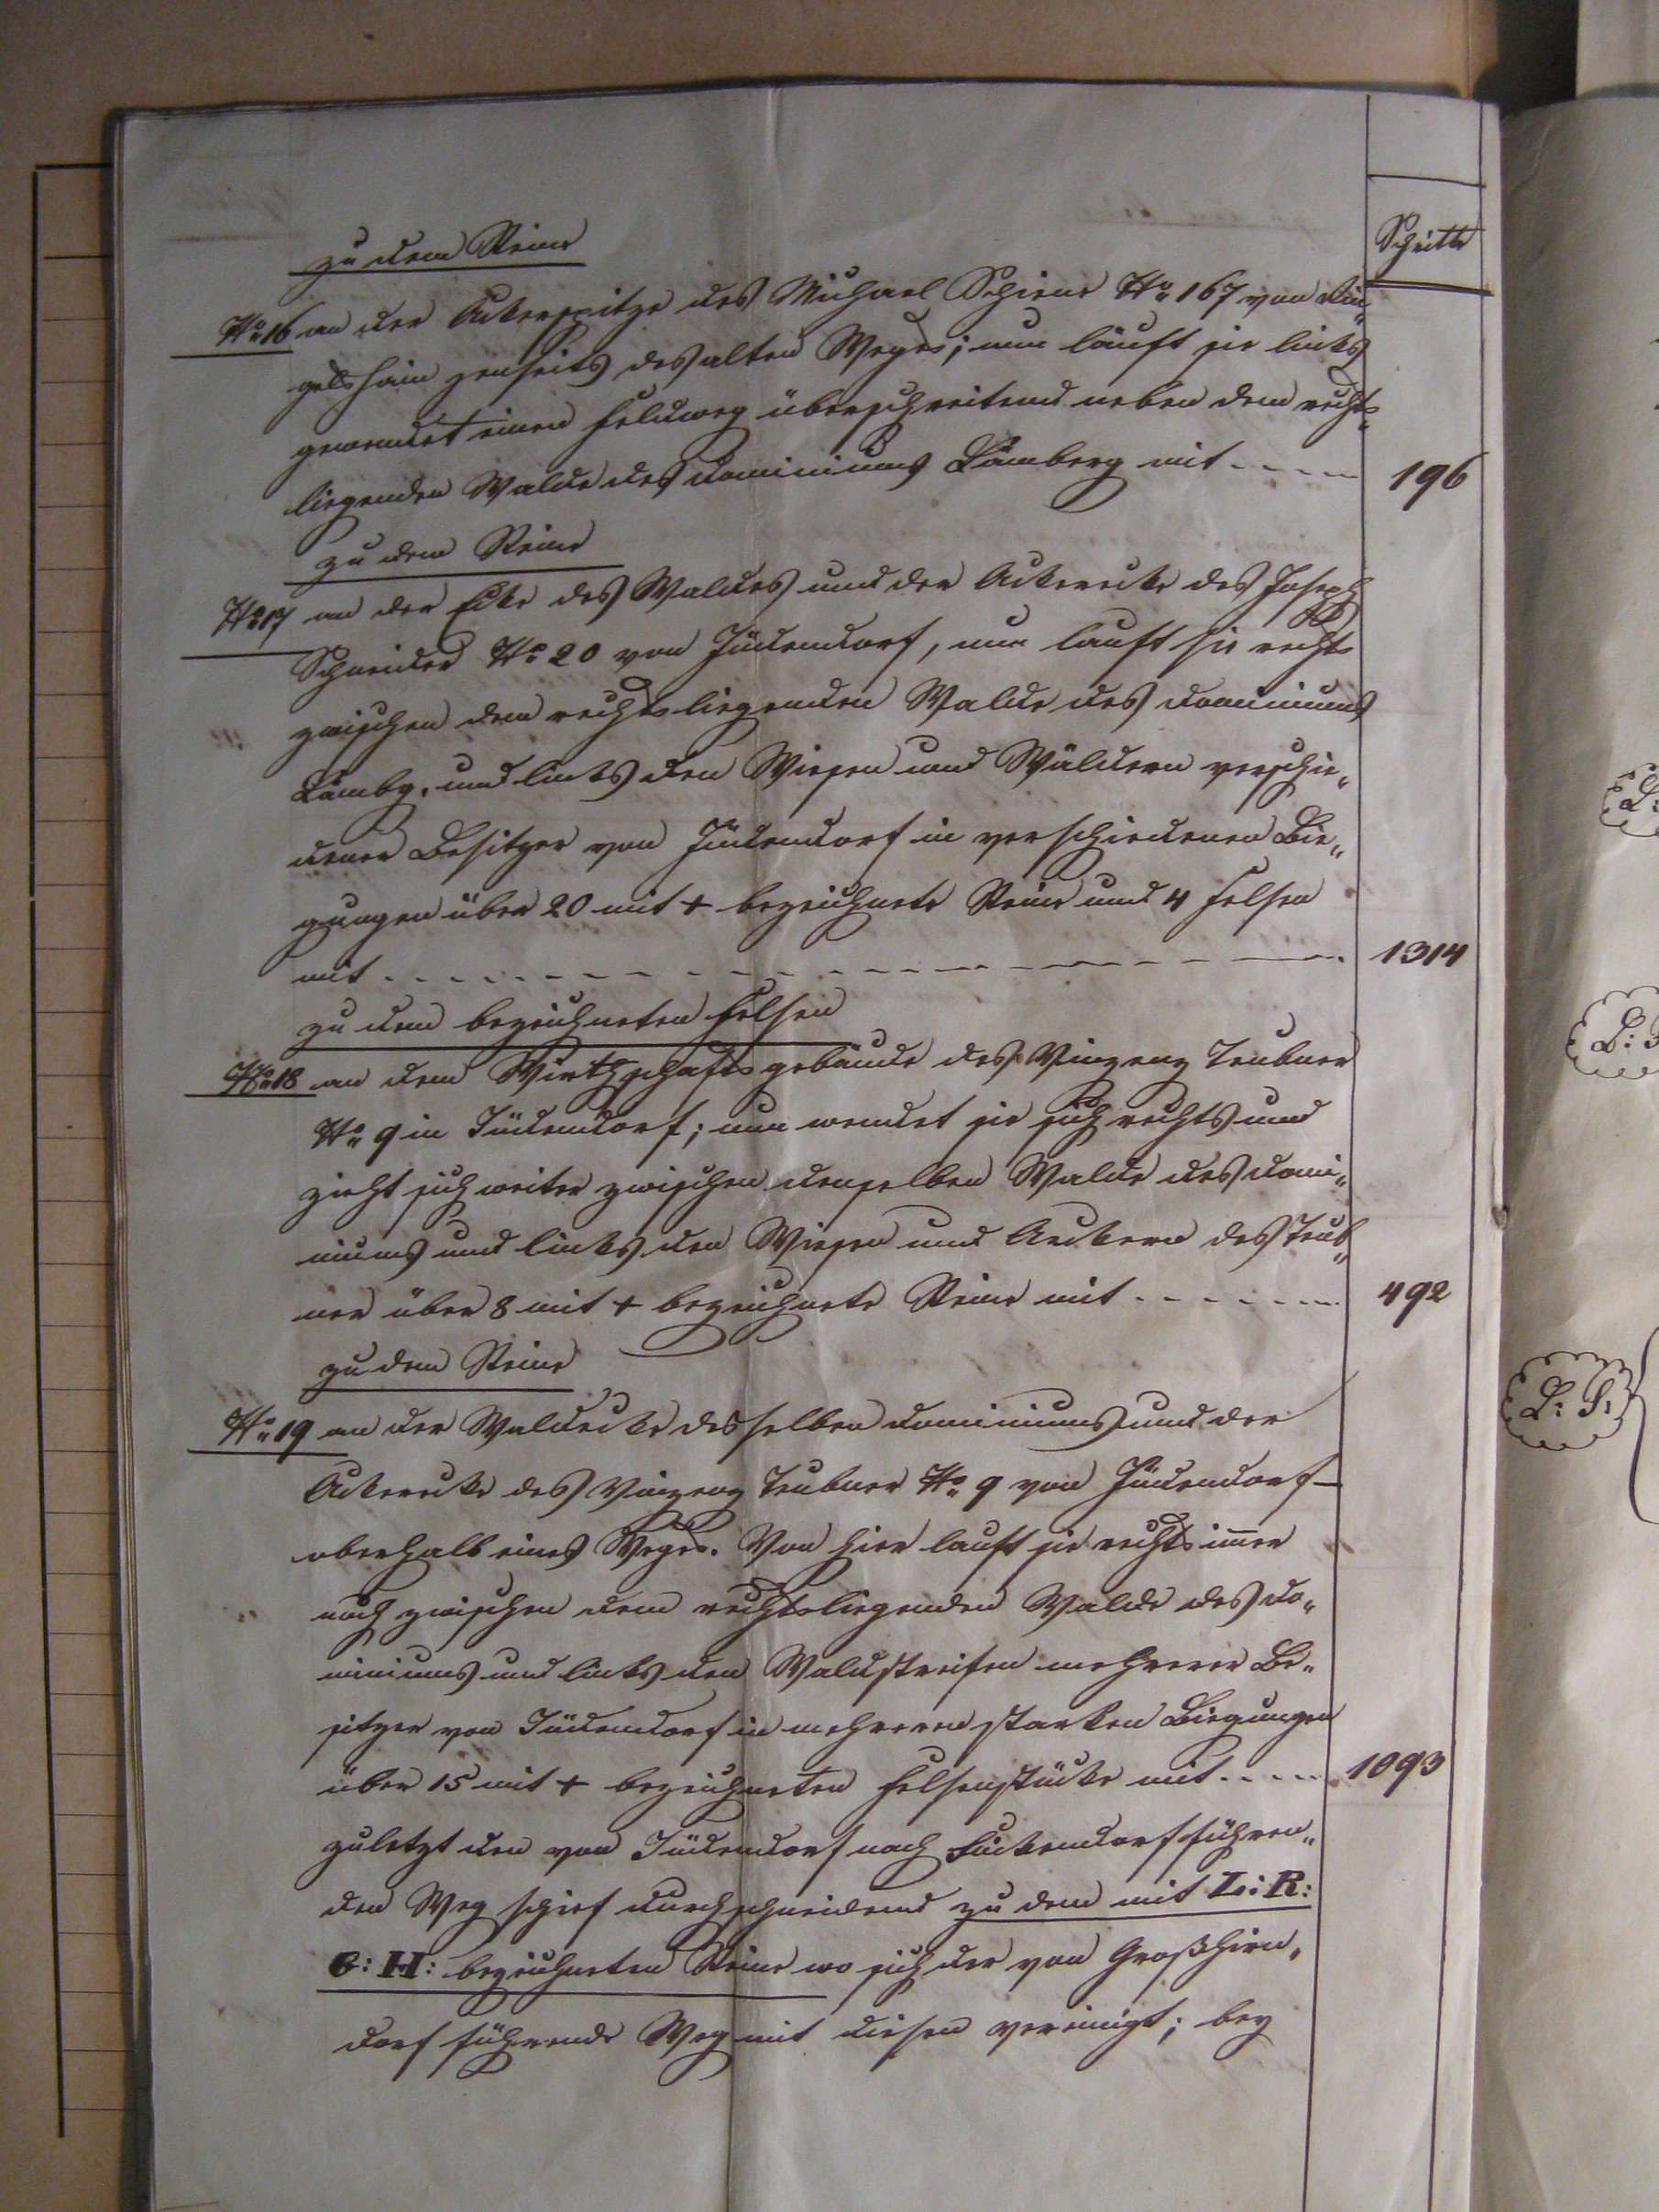 Schritte
zu dem Steine
No 16 an der Ackerspitze des Michael Schiens No 167 von Rin„
gelshain jenseits des alten Weges; nun läuft sie links
gewendet einen Feldweg überschreitend neben dem rechts„
liegenden Walde des Dominiums Lämberg mit - - - - 196
zu dem Steine
No 17 an der Ecke des Waldes und der Ackerecke des Joseph
Schneider No 20 von Jüdendorf, nun lauft sie rechts
zwischen dem rechtsliegenden Walde des Dominiums
Lämbg. und links den Wiesen und Wäldern verschie„
dener Besitzer von Jüdendorf in verschiedenen Bie„
gungen über 20 mit + bezeichnete Steine und 4 Felsen
mit - - - - - - - - - - - - - - - 1314
zu dem bezeichneten Felsen
No 18 an dem Wirthschaftsgebäude des Vinzenz Teubner
No 9 in Jüdendorf; nun wendet sie sich rechts und
zieht sich weiter zwischen demselben Walde des Domi„
niums und links den Wiesen und Aeckern des Teub„
ner über 8 mit + bezeichnete Steine mit - - - - - - - 492
zu dem Steine
No 19 an der Waldecke desselben Dominiums und der
Ackerecke des Vinzenz Teubner No 9 von Jüdendorf –
oberhalb eines Weges. Von hier lauft sie rechts im̅er
noch zwischen dem rechtsliegenden Walde des Do„
miniums und links den Waldstreifen mehrerer Be„
sitzer von Jüdendorf in mehreren starken Biegungen
über 15 mit + bezeichneten Felsenstücke mit - - - - 1093
zuletzt den von Jüdendorf nach Finkendorf führen„
den Weg schief durchschneidend zu dem mit L: R:
G: H: bezeichneten Steine wo sich der von Großhirn„
dorf führende Weg mit diesen vereinigt; bey
L: S: